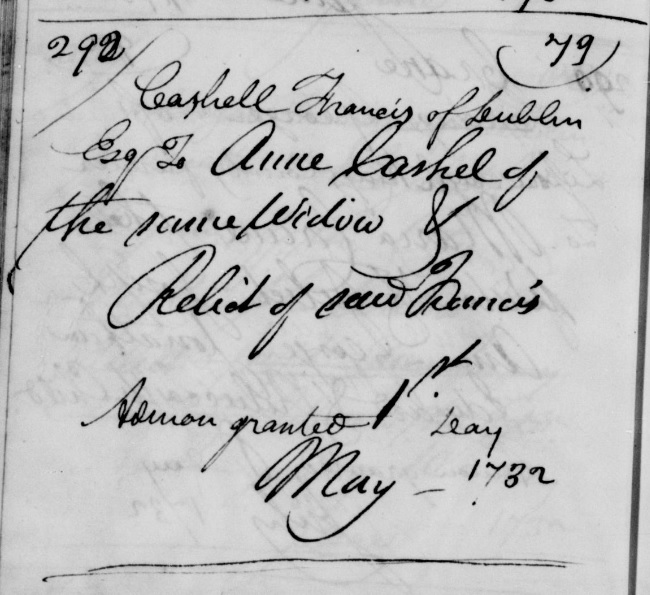 292 79
Cashell Francis of Dublin
Esq To Anne Cashel of
the same Widow &
Relict of said Francis
Admon granted 1st Day
May - 1732